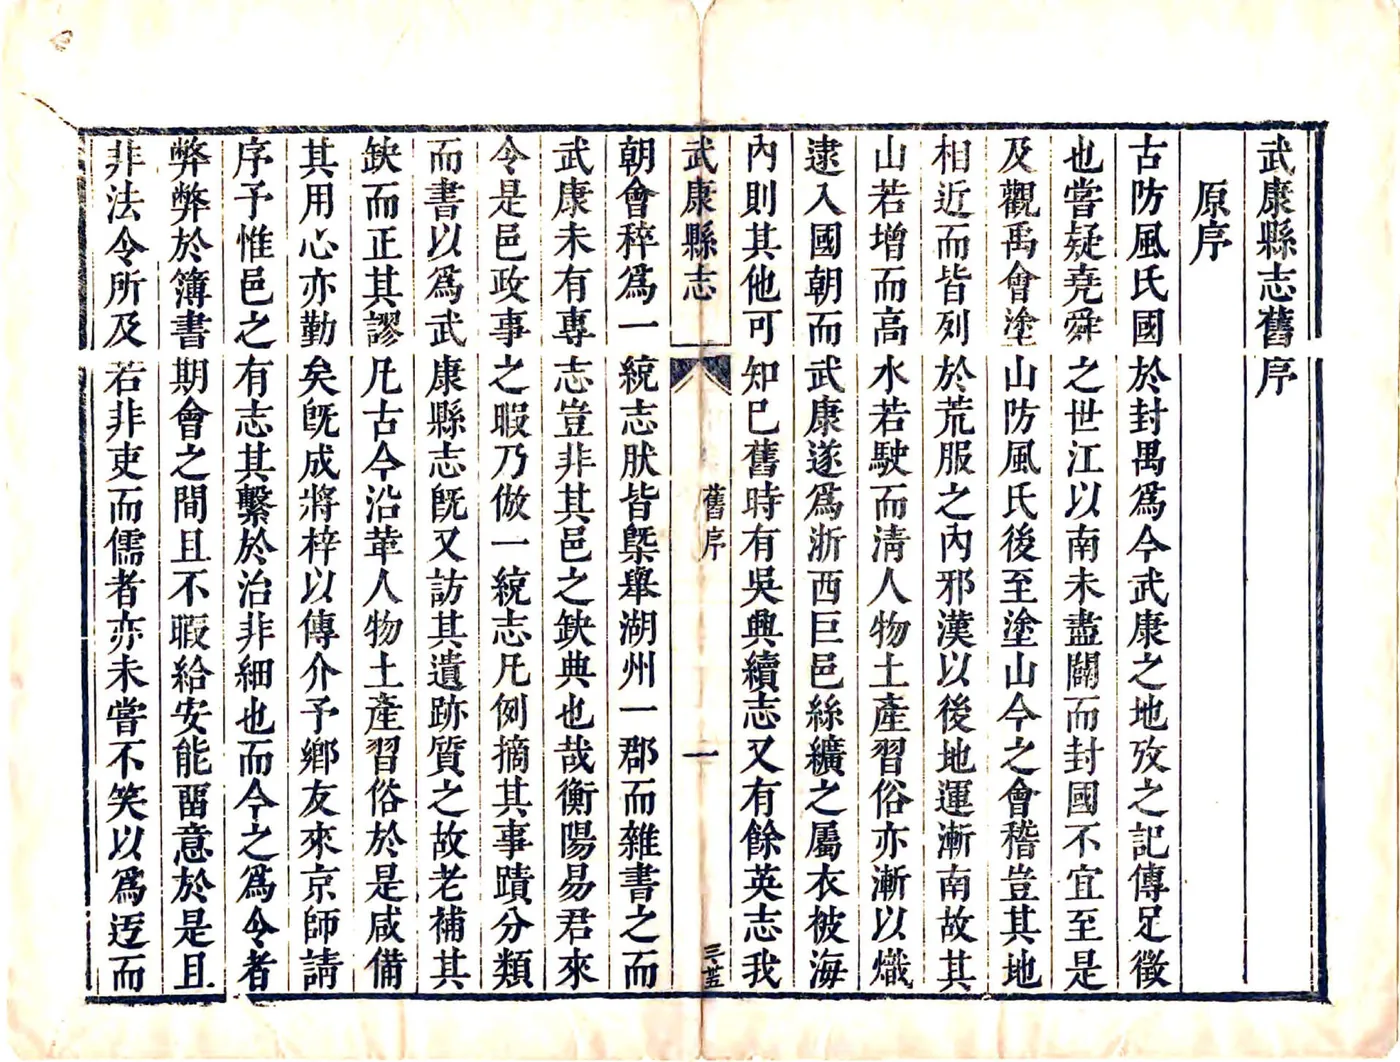 武康縣志舊序
原序
古防風氏國於封禺爲今武康之地攷之記傳足徵
也嘗疑堯舜之世江以南未盡闢而封國不宜至是
及觀禹會塗山防風氏後至塗山今之會稽豈其地
相近而皆列於荒服之內邪漢以後地運漸南故其
山若增而高水若駛而清人物土產習俗亦漸以熾
逮入國朝而武康遂爲浙西巨邑絲纊之屬衣被海
內則其他可知巳舊時有吳興續志又有餘英志我
武康縣志
舊序
一
朝會稡爲一統志肰皆槩舉湖州一郡而雜書之而
武康未有專志豈非其邑之缺典也哉衡陽易君來
令是邑政事之暇乃倣一統志凡例摘其事蹟分類
而書以爲武康縣志旣又訪其遺跡質之故老補其
缺而正其謬凡古今沿革人物土產習俗於是咸備
其用心亦勤矣旣成將梓以傳介予鄉友來京師請
序予惟邑之有志其繫於治非細也而今之爲令者
弊弊於簿書期會之間且不暇給安能畱意於是且
非法令所及若非吏而儒者亦未嘗不笑以爲迃而